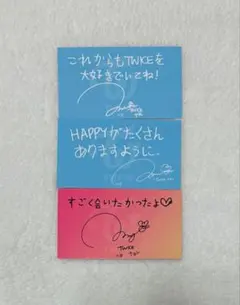 これからもTWICEを
大好きでいてね!
HAPPYがたくさん
ありますように.
すごく会いたかったよ♡
TWICE